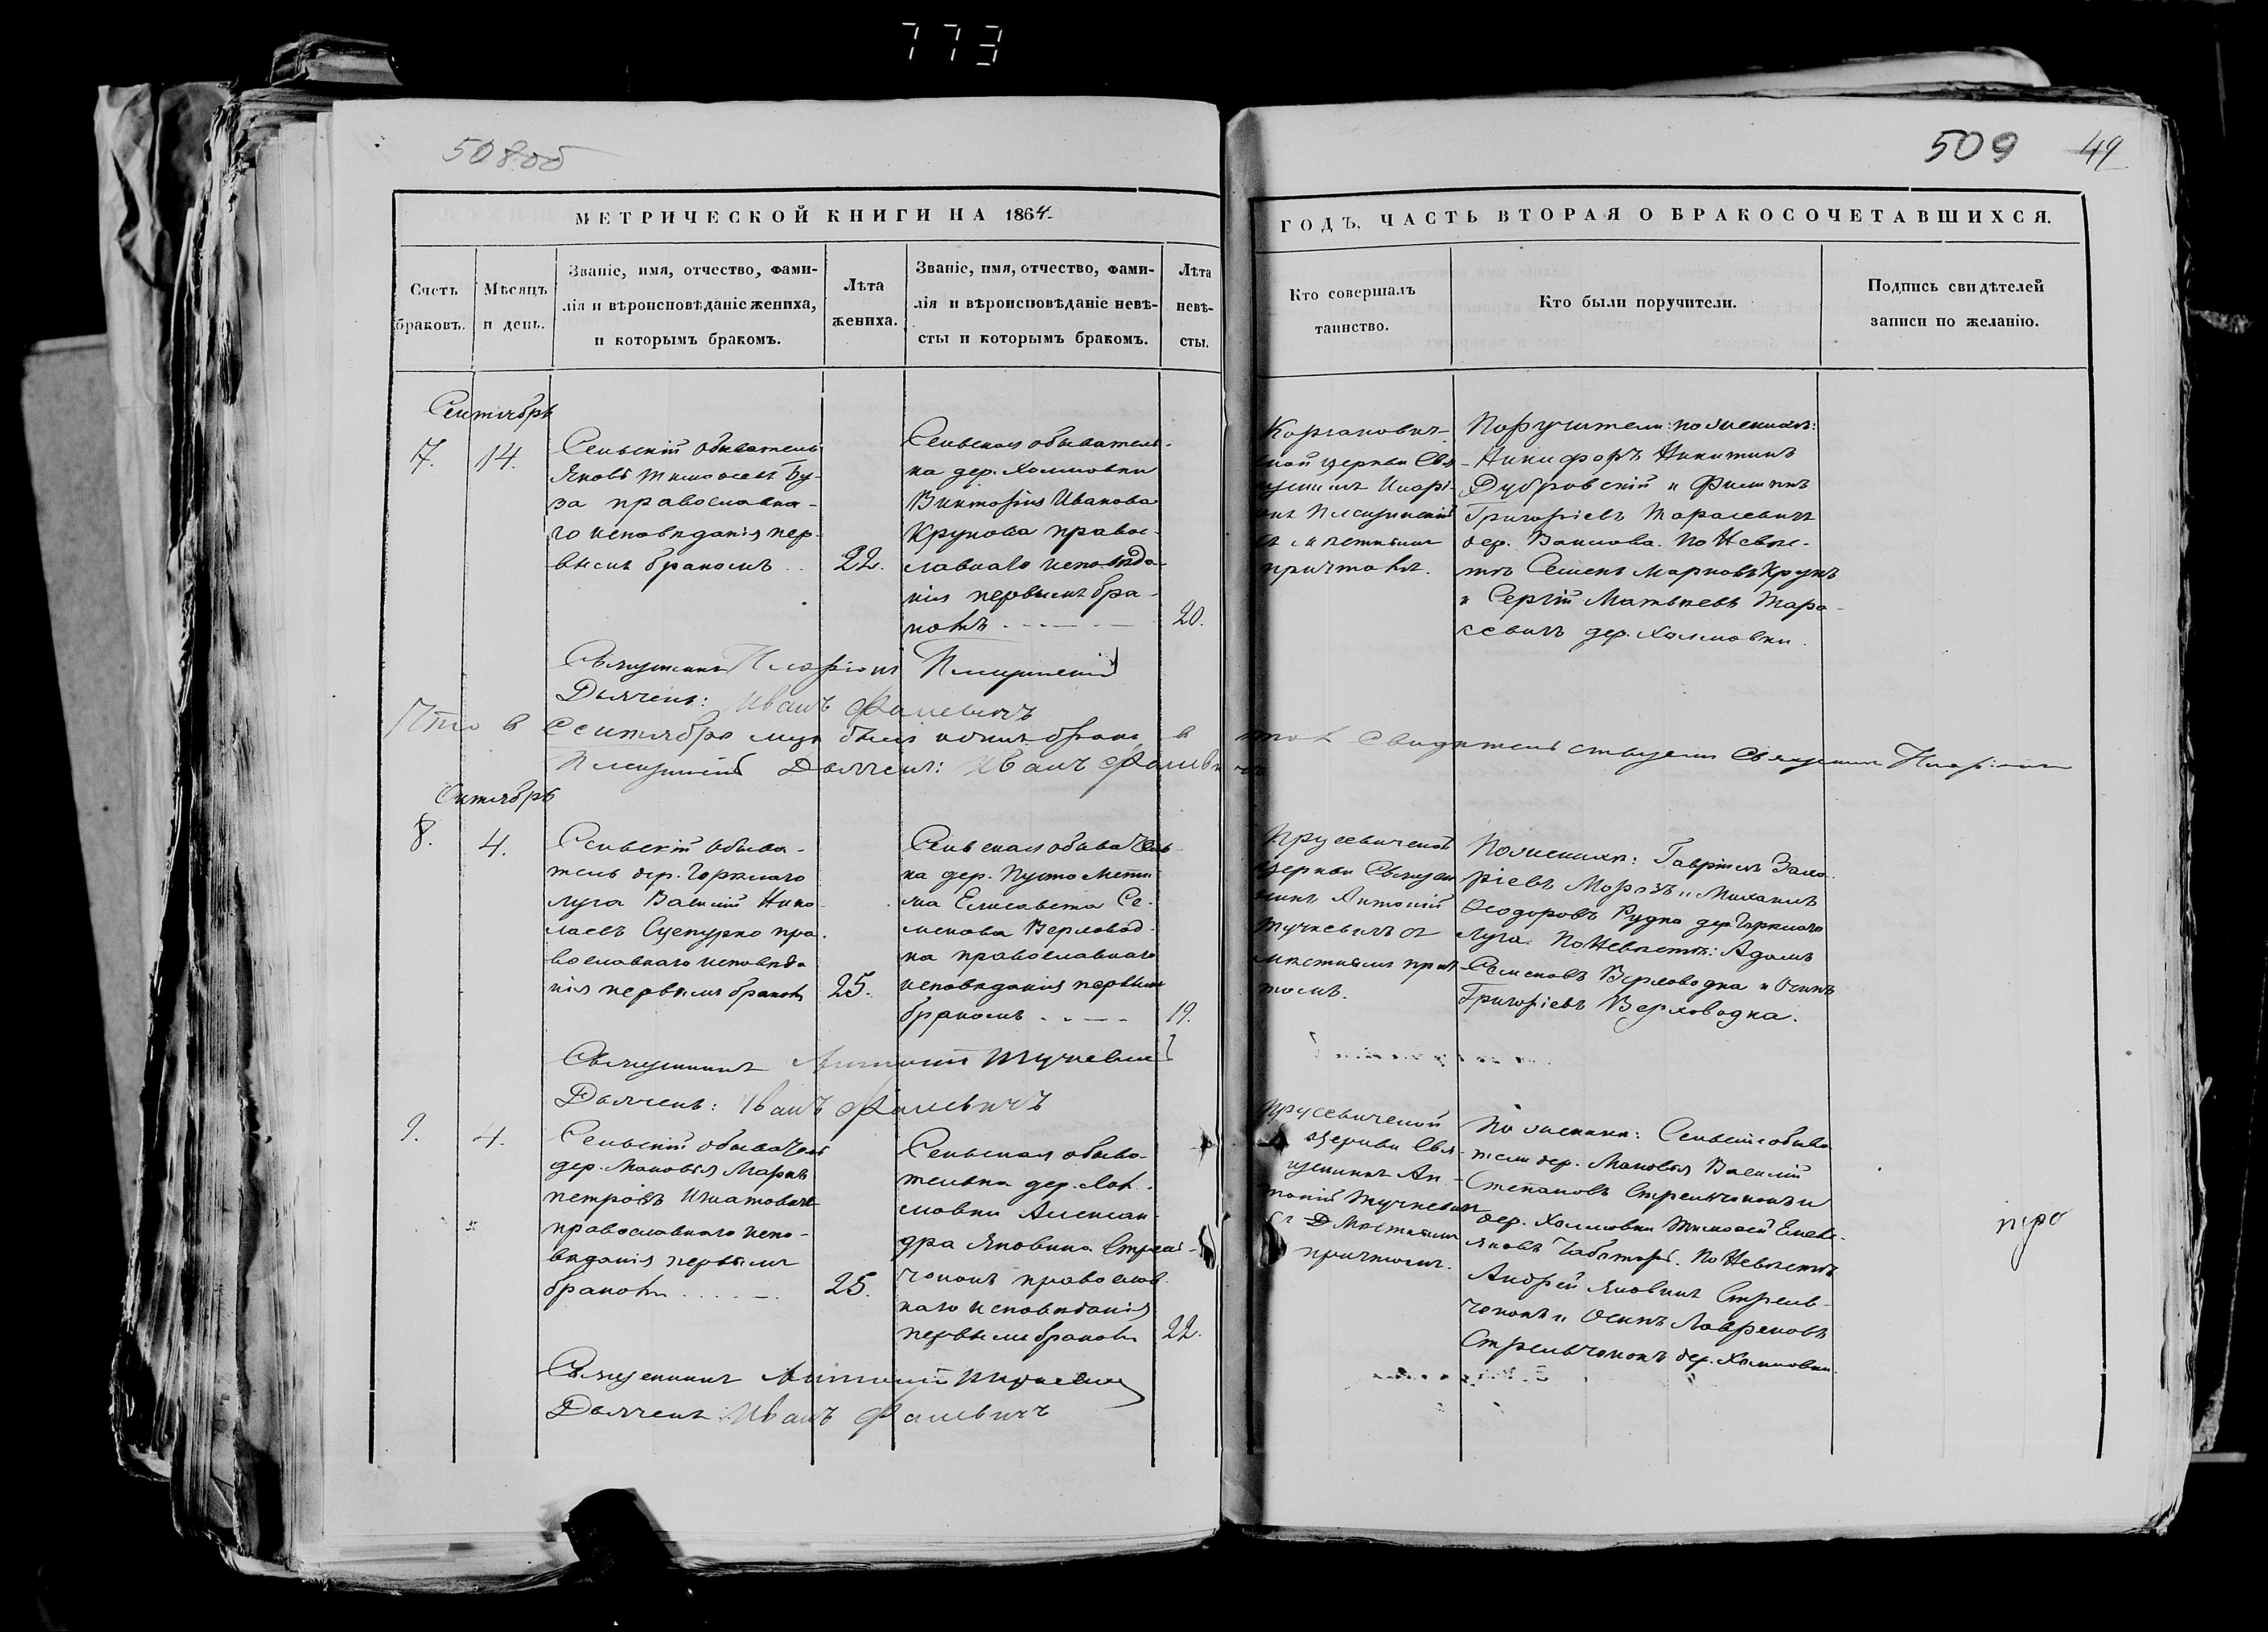 773
508об
509 49
МЕТРИЧЕСКОЙ КНИГИ НА 1864
ГОДЪ, ЧАСТЬ ВТОРАЯ О БРАКОСОЧЕТАВШИХСЯ.
Счетъ
браковъ.
Мѣсяцъ
и день.
Званіе, имя, отчество, фами-
лія и вѣроисповѣданіе жениха,
и которымъ бракомъ.
Лѣта
жениха.
Званіе, имя, отчество, фами-
лія и вѣроисповѣданіе невѣ-
сты и которымъ бракомъ.
Лѣта
невѣ-
сты.
Кто совершалъ
таинство.
Кто были поручители.
Подпись свидѣтелей
записи по желанію.
Сентябрь
7.
14.
Сельскій обыватель
Яковъ Тимофеевъ Бу-
за православна-
го исповѣданія пер-
вымъ бракомъ
22.
Сельская обыватель-
ка дер. Холмовки
Викторія Иванова
Крукова правос-
лавнаго исповѣда-
нія первымъ бра-
комъ
20.
церкви Свя-
съ мѣстнымъ
причтомъ.
Поручители: по женихѣ:
Никифоръ Никитинъ
Дубровскій и Филиппъ
Григорьевъ Тарасевичъ
дер. По Невѣс-
тѣ Семенъ Марковъ Крукъ
и Сергій Матвѣевъ Тара-
севичъ дер. Холмовки.
Священникъ Иларіонъ Плещинскій
Дьячекъ: Иванъ Фалевичъ
Что в Сентябрѣ мцѣ былъ одинъ бракъ в томъ свидѣтельствуемъ Священникъ Иларіонъ
Плещинскій Дьячекъ: Иванъ Фалевичъ
Октябрь
8.
4.
Сельскій обыва-
тель дер. Горѣлаго
луга Василій Нико-
лаевъ Сцепурко пра-
вославнаго исповѣда
нія первымъ бракомъ
25.
Сельская обыватель-
ка дер. Пусто Мети
ма Елисавета Се-
менова Верховод-
ка православнаго
исповѣданія первымъ
бракомъ
19.
Прусевичской
церкви Священ
никъ Антоній
Тучкевичъ съ
мѣстнымъ прич
томъ.
По женихѣ: Гавріилъ Заха
ріевъ Морозъ и Михаилъ
Ѳеодоровъ Рудко дер. Горѣлаго
Луга. По Невѣстѣ: Адамъ
Семеновъ Верховодка и Осипъ
Григорьевъ Верховодка.
Священникъ Антоній Тучкевичъ
Дьячекъ: Иванъ Фалевичъ
9.
4.
Сельскій обыватель
дер. Маковья Маркъ
Петровъ Игнатовичъ
православнаго испо-
вѣданія первымъ
бракомъ
25.
Сельская обыва-
телька дер. Хол-
мовки Алексан-
дра Яковина Стрель-
чонокъ православ
наго исповѣданія
первымъ бракомъ
22.
Прусевичской
церкви Свя
щенникъ Ан-
тоній Тучкевичъ
съ мѣстнымъ
причтомъ.
По женихѣ: Сельскіе обыва
тели дер. Маковья Василій
Степановъ Стрельчонокъ и
дер. Холмовки Тимофей
Яковъ По Невѣстѣ
Андрей Яковинъ Стрель-
чонокъ и Осипъ Лавреновъ
Стрельчонокъ дер. Холмовки.
Священникъ Антоній Тучкевичъ
Дьячекъ: Иванъ Фалевичъ